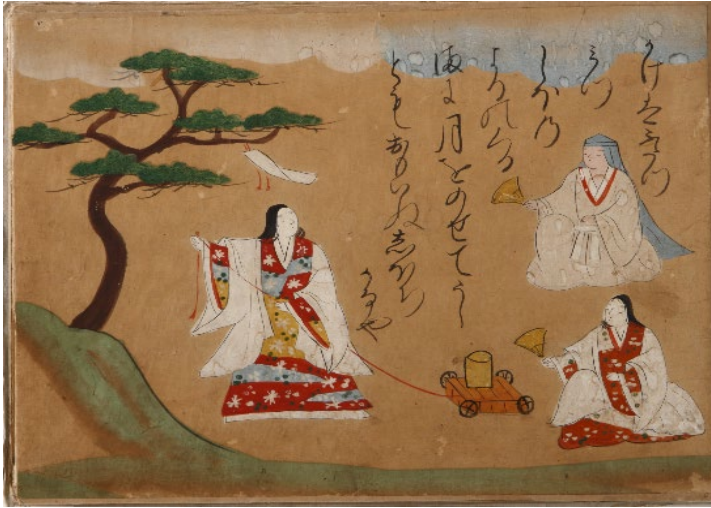 かけはふたつ
みつ
しほの
よるのくる
まに月をのせてうし
ともおもハぬしほち
かなや